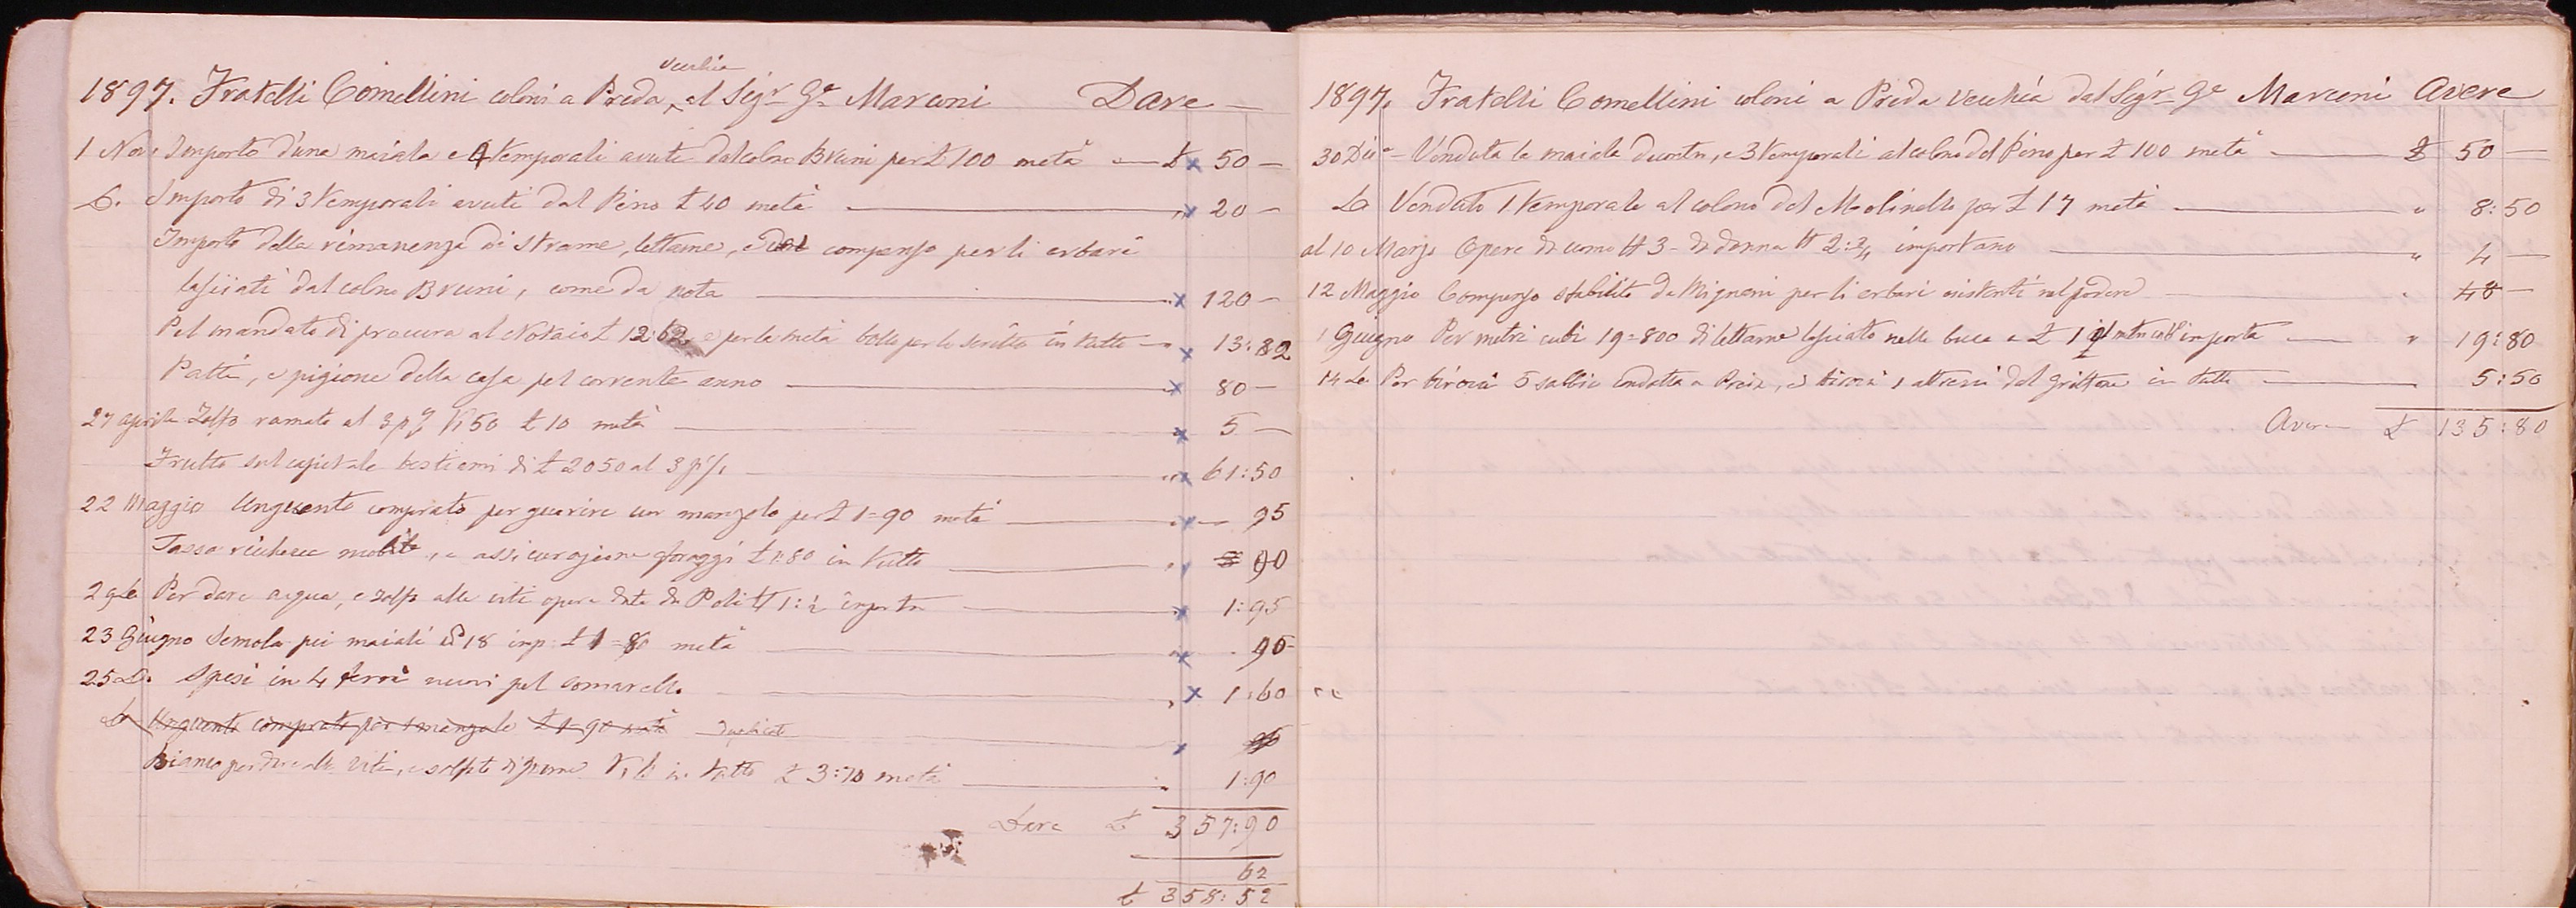 1897. Fratelli Comellini coloni a Preda vecchia al Sigr Ge Marconi Dare
1 Nove Importo d'una maiala e 4 temporali avuti dal colno Bruni per £ 100 metà £ 50 —
D. Importo di 3 temporali avuti dal Pino £ 40 metà " 20 —
Importo della rimanenza di strame, lettame, e del compenso per li erbari
lasciati dal colno Bruni, come da nota " 120 —
Pel mandato di procura al Notaio £ 12:62 e per la metà bollo per le scritte in tutto 13:82
Patti, e pigione della casa pel corrente anno 80 —
27 aprile Zolfo ramato al 3 p% K 50 £ 10 metà 5 —
Frutto sul capitale bestiami di £ 2050 al 3 p% " 61:50
22 Maggio Unguento comprato per guarire un manzolo per £ 1=90 metà 95
Tassa richezze mobile, e assicurazione foraggi £ 1:80 in tutto 90
29 De Per dare acqua, e zolfo alle viti opere date da Poli # 1:½ importa 1:95
23 Giugno Semola pei maiali 18 imp. £ 1=80 metà 90
25 D. Spesi in 4 ferri nuovi pel somarello 1:60
D. Unguento comprato per 1 manzolo £ 1=90 metà duplicato 95
per dare alle viti, e solfato di rame K in tutto £ 3:70 metà 1:90
Dare £ 357:90
62
£ 358:52
1897. Fratelli Comellini coloni a Preda vecchia dal Sigr Ge Marconi Avere
30 Dice Venduta la maiala decontro, e 3 temporali al colono del Pino per £ 100 metà £ 50 —
De Venduto 1 temporale al colono del Molinello per £ 17 metà " 8:50
al 10 Marzo Opere da uomo # 3 - da donna # 2:¾ importano " 4 —
12 Maggio Compenso stabilito da Mignani per li erbari esistenti nel podere " 48 —
1 Giugno Per metri cubi 19=800 di lettame lasciato nelle buca a £ 1 il metro cubo importa " 19:80
14 De Per birocci 5 sabbia condotta a Preda, e birocci 1 altresì dal Griffone in tutto 5:50
Avere £ 135:80